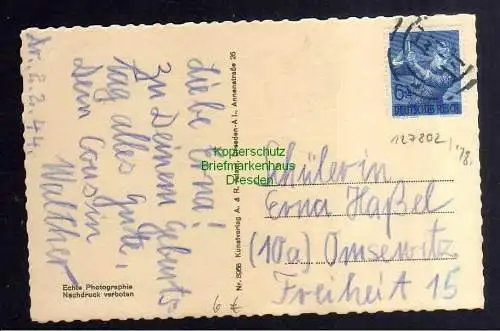 Dr. 6. 2. 44.
Liebe Erna!
Zu Deinem Geburts-
tag alles Gute,
Dein Cousin
Walther
Echte Photographie
Nachdruck verboten
Nr. 8068 Kunstverlag A. & R. Dresden-A 1, Annenstraße 26
Kopierschutz
Briefmarkenhaus
Dresden
6
DEUTSCHES REICH
127802 / 78.
Schülerin
Erna Haßel
(10a) Omsewitz
Freiheit 15
6 €